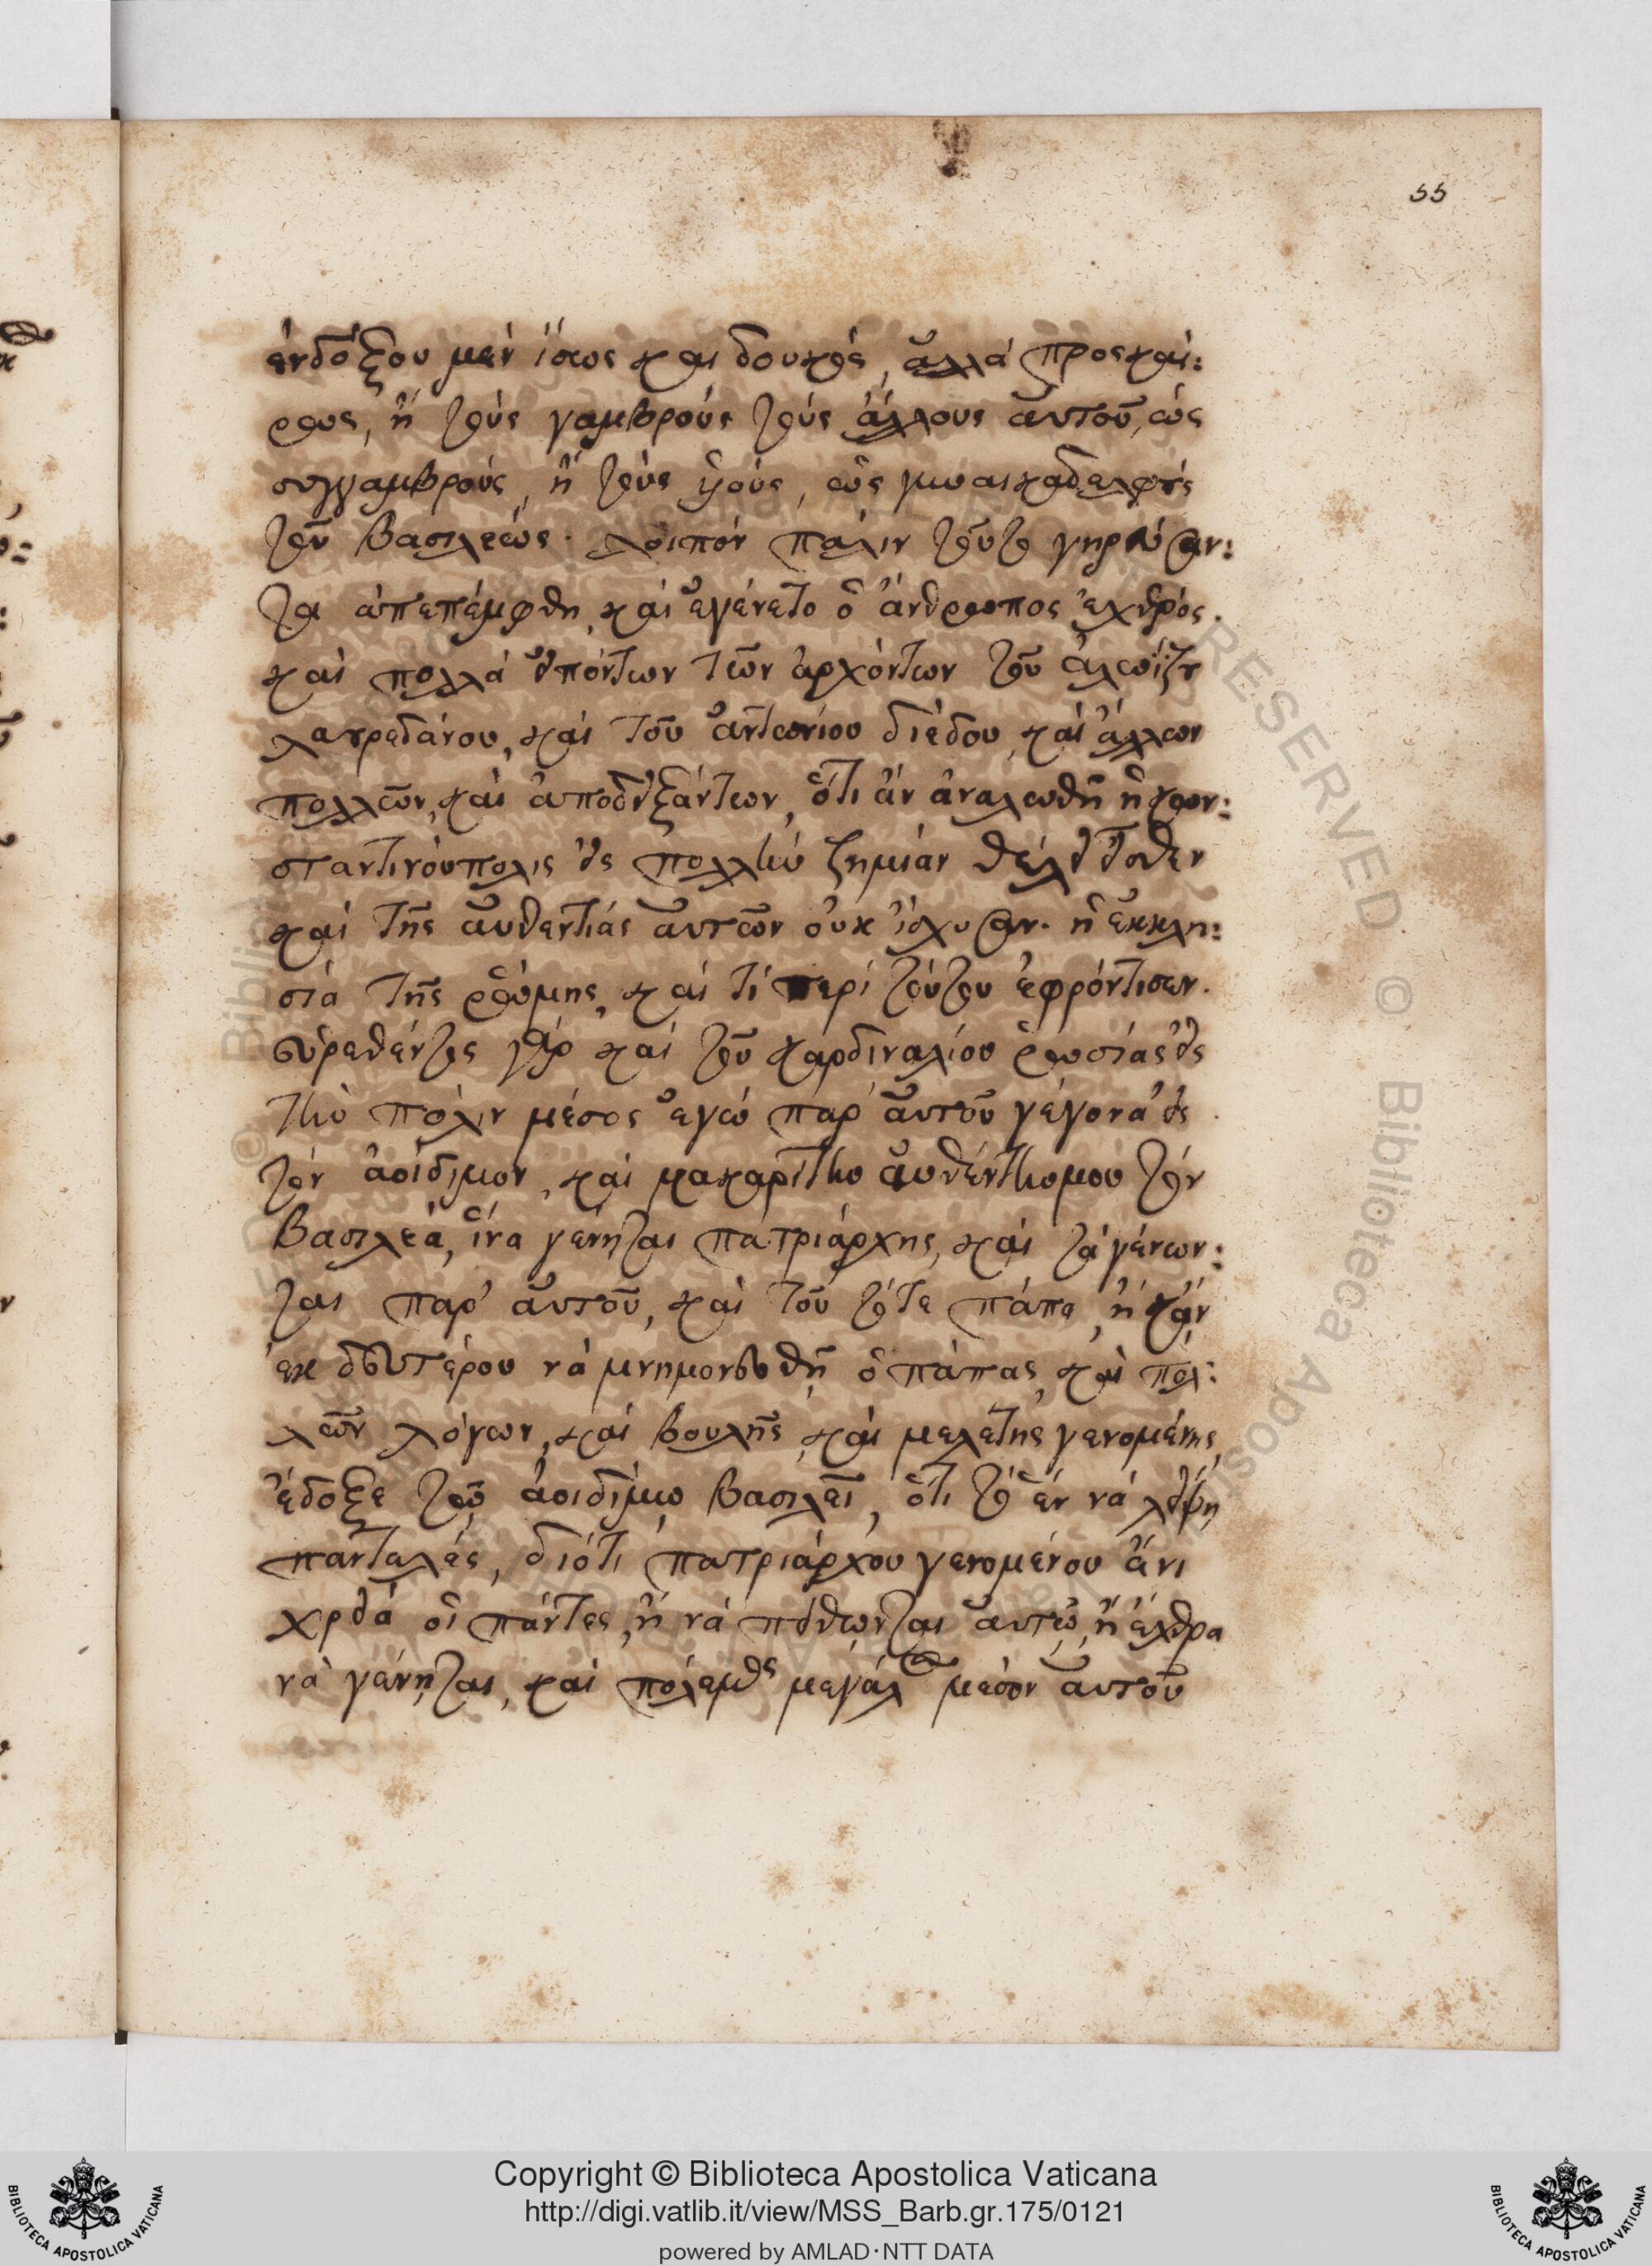 55
ἐνδόξου μὲν ἴσως καὶ δουκός, ἀλλὰ προσκαί:
ρως, ἢ τοὺς γαμβροὺς τοὺς ἄλλους αὐτοῦ, ὡς
συγγαμβρούς, ἢ τοὺς υἱούς, ὡς γυναικαδελφούς
τοῦ βασιλέως. λοιπὸν πάλιν τοῦτο γηρεύσαν:
τα ἀπεπέμφθη, καὶ ἐγένετο ὁ ἄνθρωπος ἐχθρός.
καὶ πολλὰ εἰπόντων τῶν ἀρχόντων τοῦ ἀλωΐζη
λαυρεδάνου, καὶ τοῦ ἀντωνίου διέδου, καὶ ἄλλων
πολλῶν, καὶ ἀποδειξάντων, ὅτι ἂν ἀναλωθῇ ἡ κων:
σταντινούπολις εἰς πολλὴν ζημίαν θέλει ἐλθεῖν
καὶ τῆς αὐθεντίας αὐτῶν οὐκ ἴσχυσαν. ἡ ἐκκλη:
σία τῆς ῥώμης, καὶ τί περὶ τούτου ἐφρόντισεν.
εὑρεθέντος γὰρ καὶ τοῦ καρδιναλίου ῥωσίας εἰς
τὴν πόλιν μέσος ἐγὼ παρ' αὐτοῦ γέγονα εἰς
τὸν ἀοίδιμον, καὶ μακαρίτην αὐθέντην μου τὸν
βασιλέα, ἵνα γένηται πατριάρχης, καὶ τὰ γένων:
ται παρ' αὐτοῦ, καὶ τοῦ τότε πάπα, ἢ κἂν
ἐκ δευτέρου νὰ μνημονευθῇ ὁ πάπας, καὶ πολ:
λῶν λόγων, καὶ βουλῆς, καὶ μελέτης γενομένης,
ἔδοξε τῷ ἀοιδίμῳ βασιλεῖ, ὅτι τὸ ἓν νὰ λείψῃ
παντελές, διότι πατριάρχου γενομένου ἔνι
χρεία οἱ πάντες, ἢ νὰ πείθωνται αὐτῷ, ἢ ἔχθρα
νὰ γένηται, καὶ πόλεμος μεγάλος μέσον αὐτοῦ
Copyright © Biblioteca Apostolica Vaticana
http://digi.vatlib.it/view/MSS_Barb.gr.175/0121
powered by AMLAD·NTT DATA